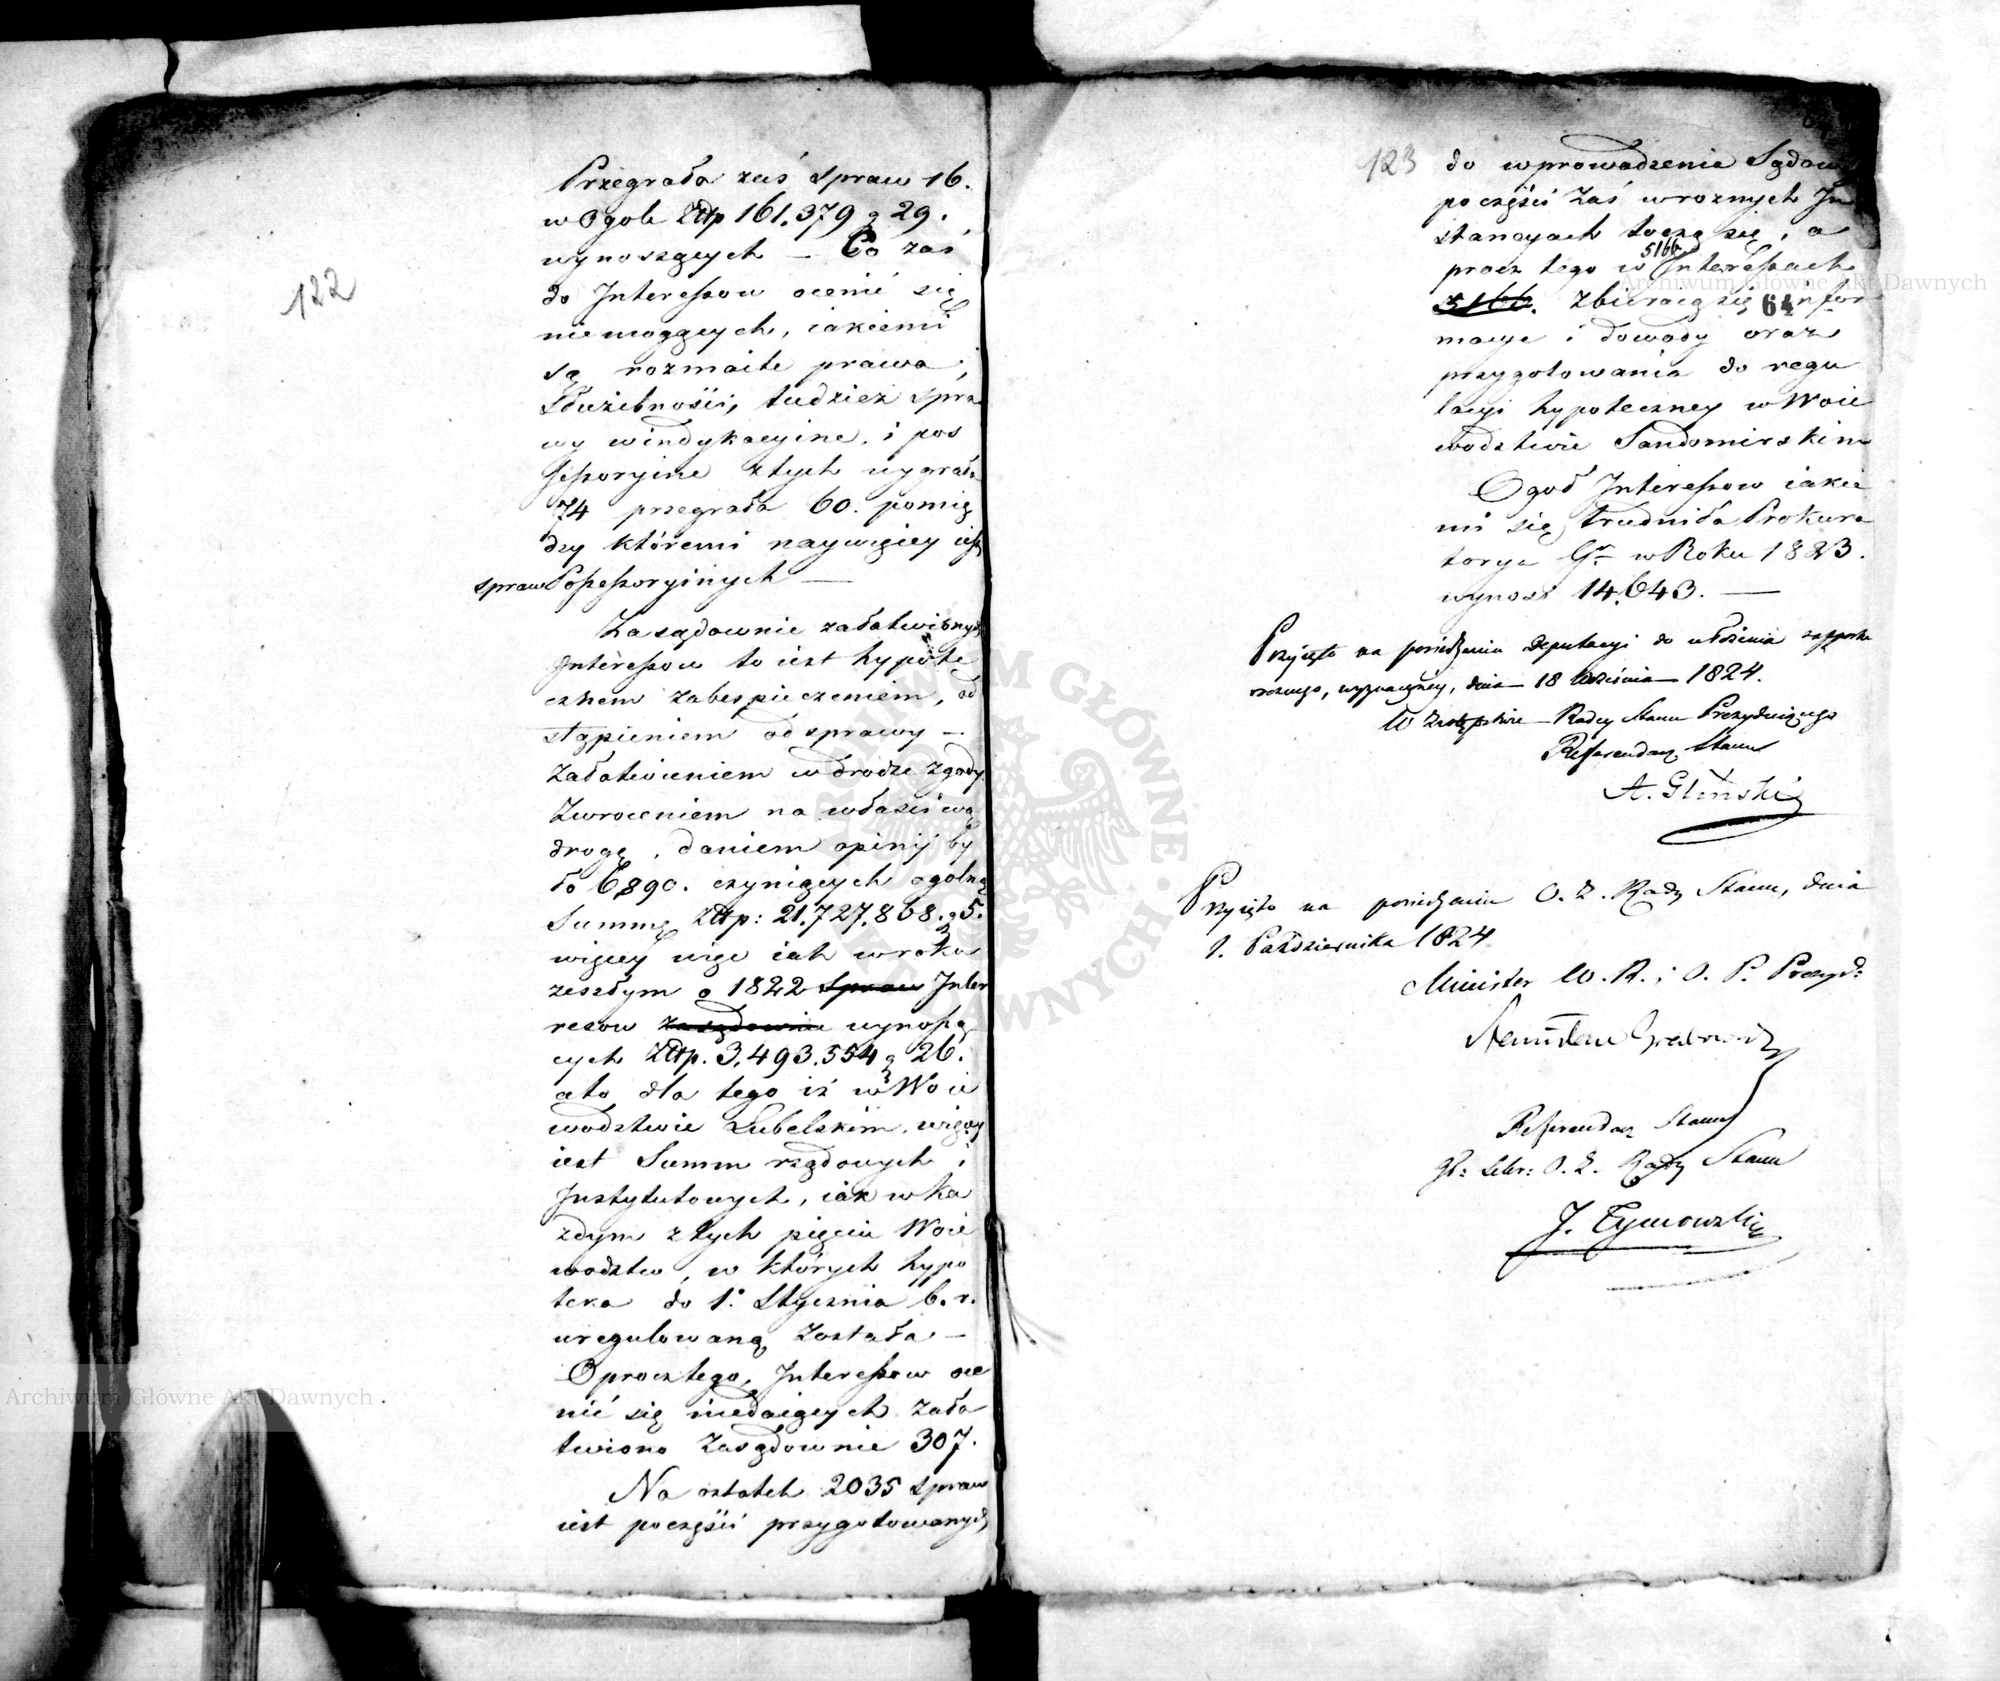 122
Przegrała zaś spraw 16.
w Ogole Złtp 161.379 g 29.
wynoszących — Co zaś
do Interessow ocenić się
niemogących, iakiemi
są rozmaite prawa,
Służebności, tudzież spra
wy windykacyine, i pos
sessoryine z tych wygrała
74 przegrała 60. pomię
dzy któremi naywięcey iest
spraw Possessoryinych —
Zasądownie załatwionych
Interessow to iest hypote
cznem zabespieczeniem, od
stąpieniem od sprawy —
Załatwieniem w drodze zgody
Zwroceniem na właściwą
drogę, daniem opinij by
ło 6890. czyniących ogolną
Summę Złtp: 21.727.868. g 5.
więcey więc iak w roku
zeszłym o 1822 spraw Inter
resow zasądownie wynoszą
cych Złtp. 3.493.554 g 26.
a to dla tego iż w Woie
wodztwie Lubelskim, więcey
iest Summ rządowych i
Instytutowych, iak w ka
żdym z tych pięciu Woie
wodztw, w których hypo
teka do 1. Stycznia b. r.
uregulowaną została —
Oprocz tego, Interessow oce
nić się niedaiących zała
twiono Zasądownie 307.
Na ostatek 2035 spraw
iest poczęści przygotowanych
123
do wprowadzenia Sądow
poczęści Zaś w roznych In
stancyach toczą się, a
procz tego w 5166 Interessach
5166. zbieraią się infor
64
macye i dowody oraz
przygotowania do regu
lacyi hypoteczney w Woie
wodztwie Sandomirskim
Ogoł Interessow iakie
mi się trudniła Prokura
torya Gr w Roku 1823.
wynosi 14.643. —
Przyięto na posiedzeniu Deputacyi do ułożenia rapportu
rocznego, wyznaczoney, dnia 18 Września 1824.
W Zastępstwie Radcy Stanu Prezyduiącego
Referendarz Stanu
A. Gliński
Przyięto na posiedzeniu O. Z. Rady Stanu, dnia
1. Października 1824
Minister W. R. i O. P. Prezyd:
Stanisław Grabowski
Referendarz Stanu
Zł: Sekr: O. Z. Rady Stanu
J. Tymowski
Archiwum Główne Akt Dawnych
Archiwum Główne Akt Dawnych
ARCHIWUM GŁÓWNE AKT DAWNYCH